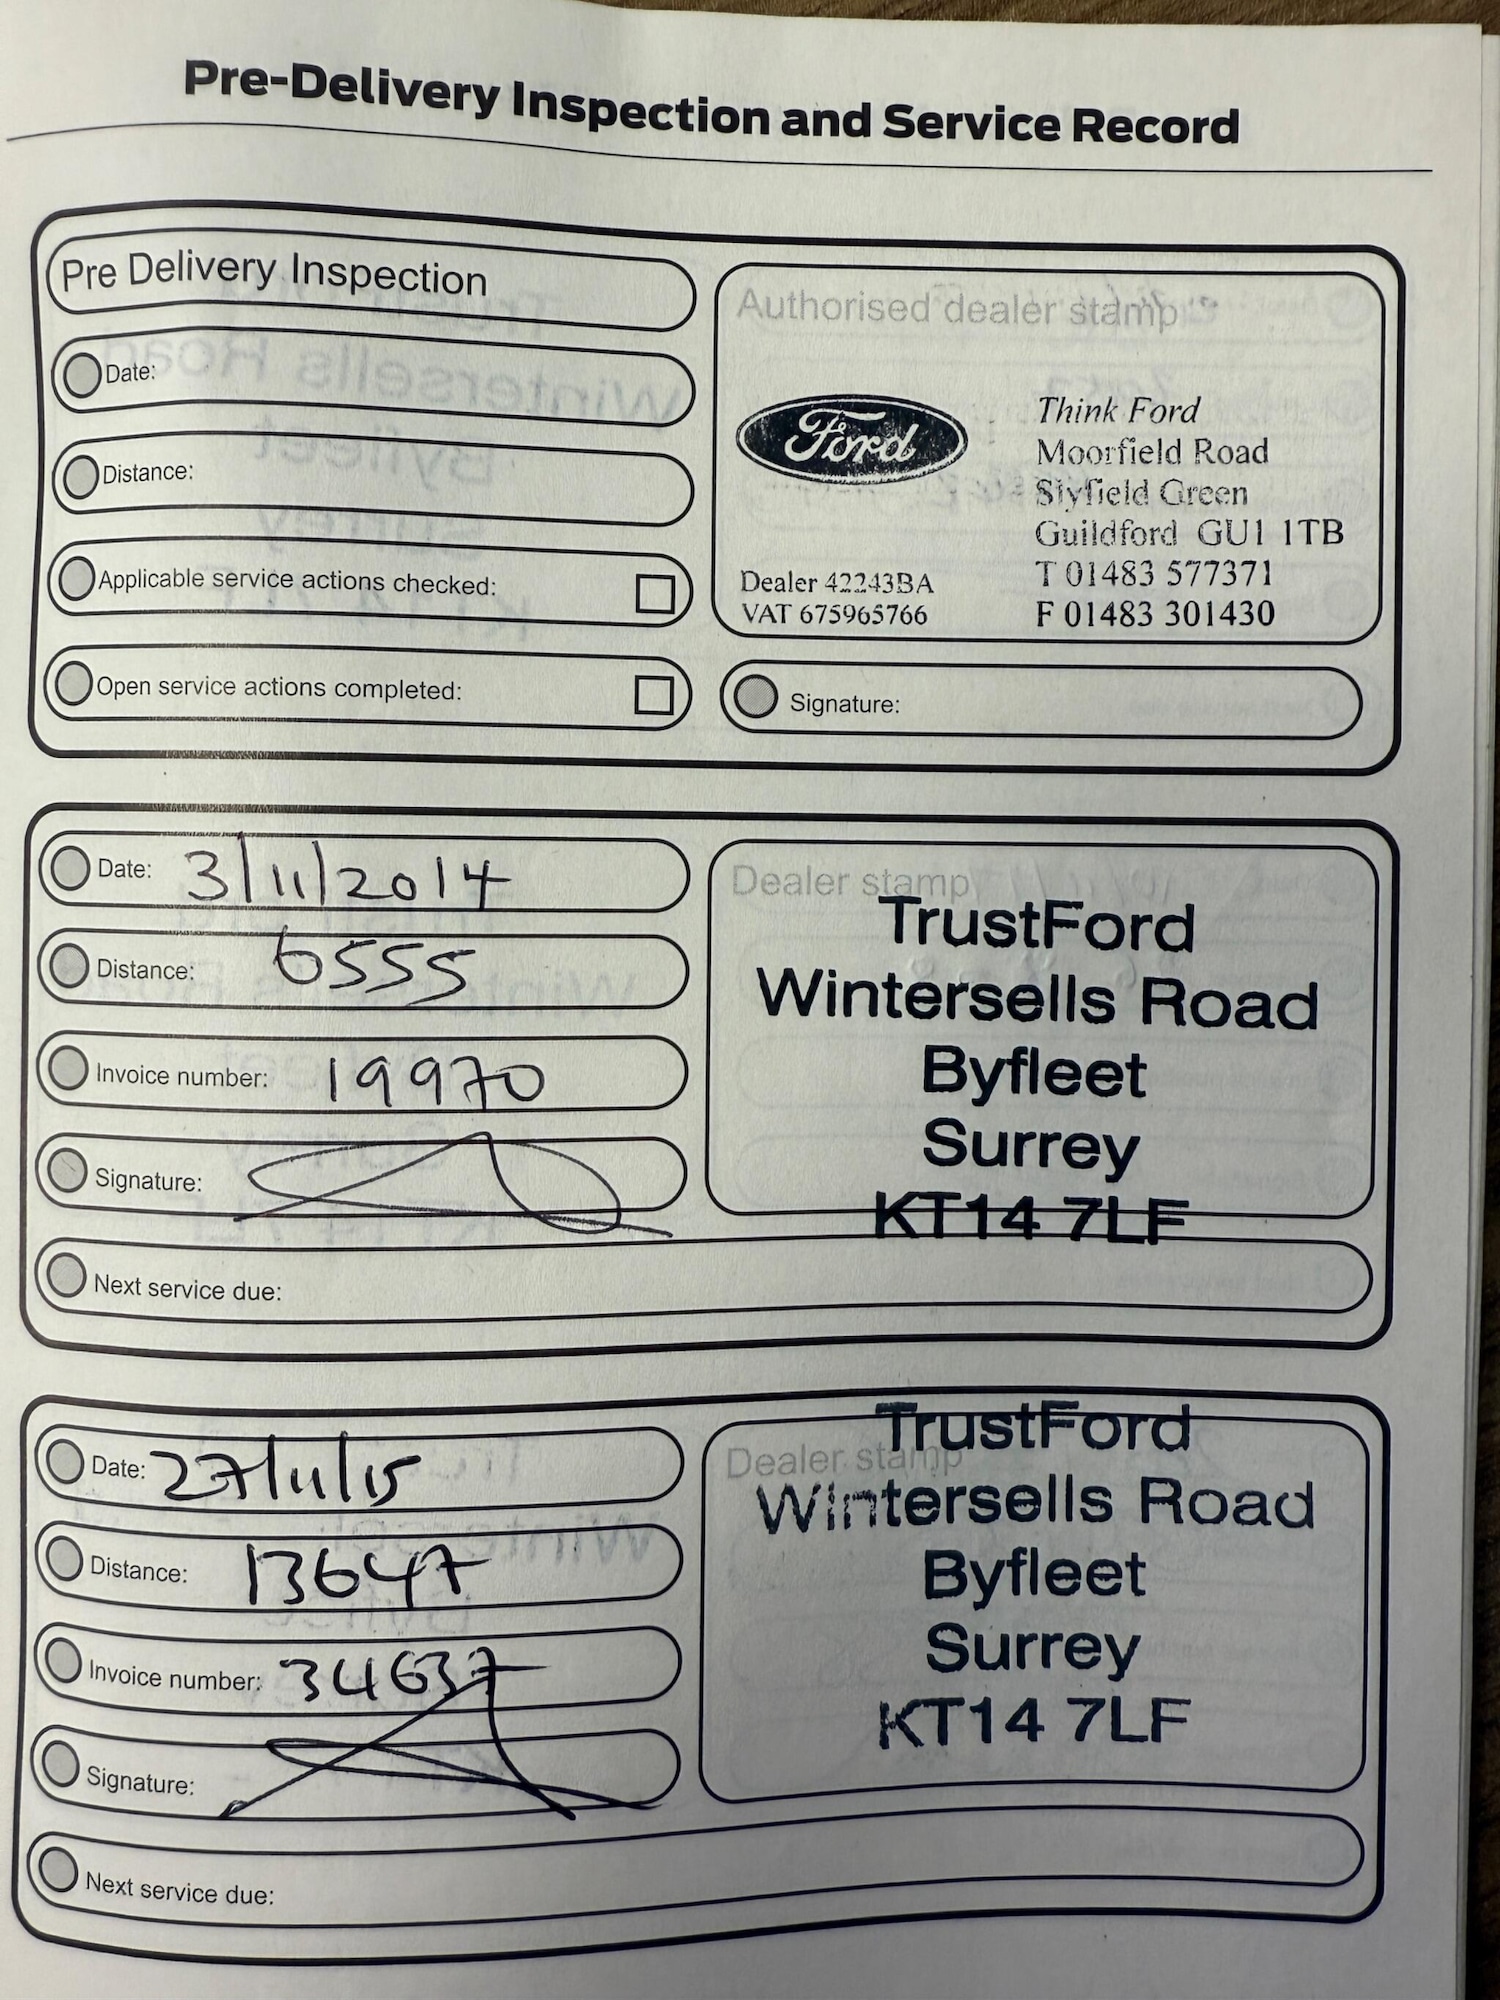 Pre-Delivery Inspection and Service Record
Pre Delivery Inspection
Date:
Distance:
Applicable service actions checked:
Open service actions completed:
Authorised dealer stamp
Ford
Think Ford
Moorfield Road
Slyfield Green
Guildford GU1 1TB
T 01483 577371
F 01483 301430
Dealer 42243BA
VAT 675965766
Signature:
Date: 3/11/2014
Distance: 6555
Invoice number: 19970
Signature:
Dealer stamp
TrustFord
Wintersells Road
Byfleet
Surrey
KT14 7LF
Next service due:
Date: 27/11/15
Distance: 13647
Invoice number: 34637
Signature:
Dealer stamp
TrustFord
Wintersells Road
Byfleet
Surrey
KT14 7LF
Next service due: